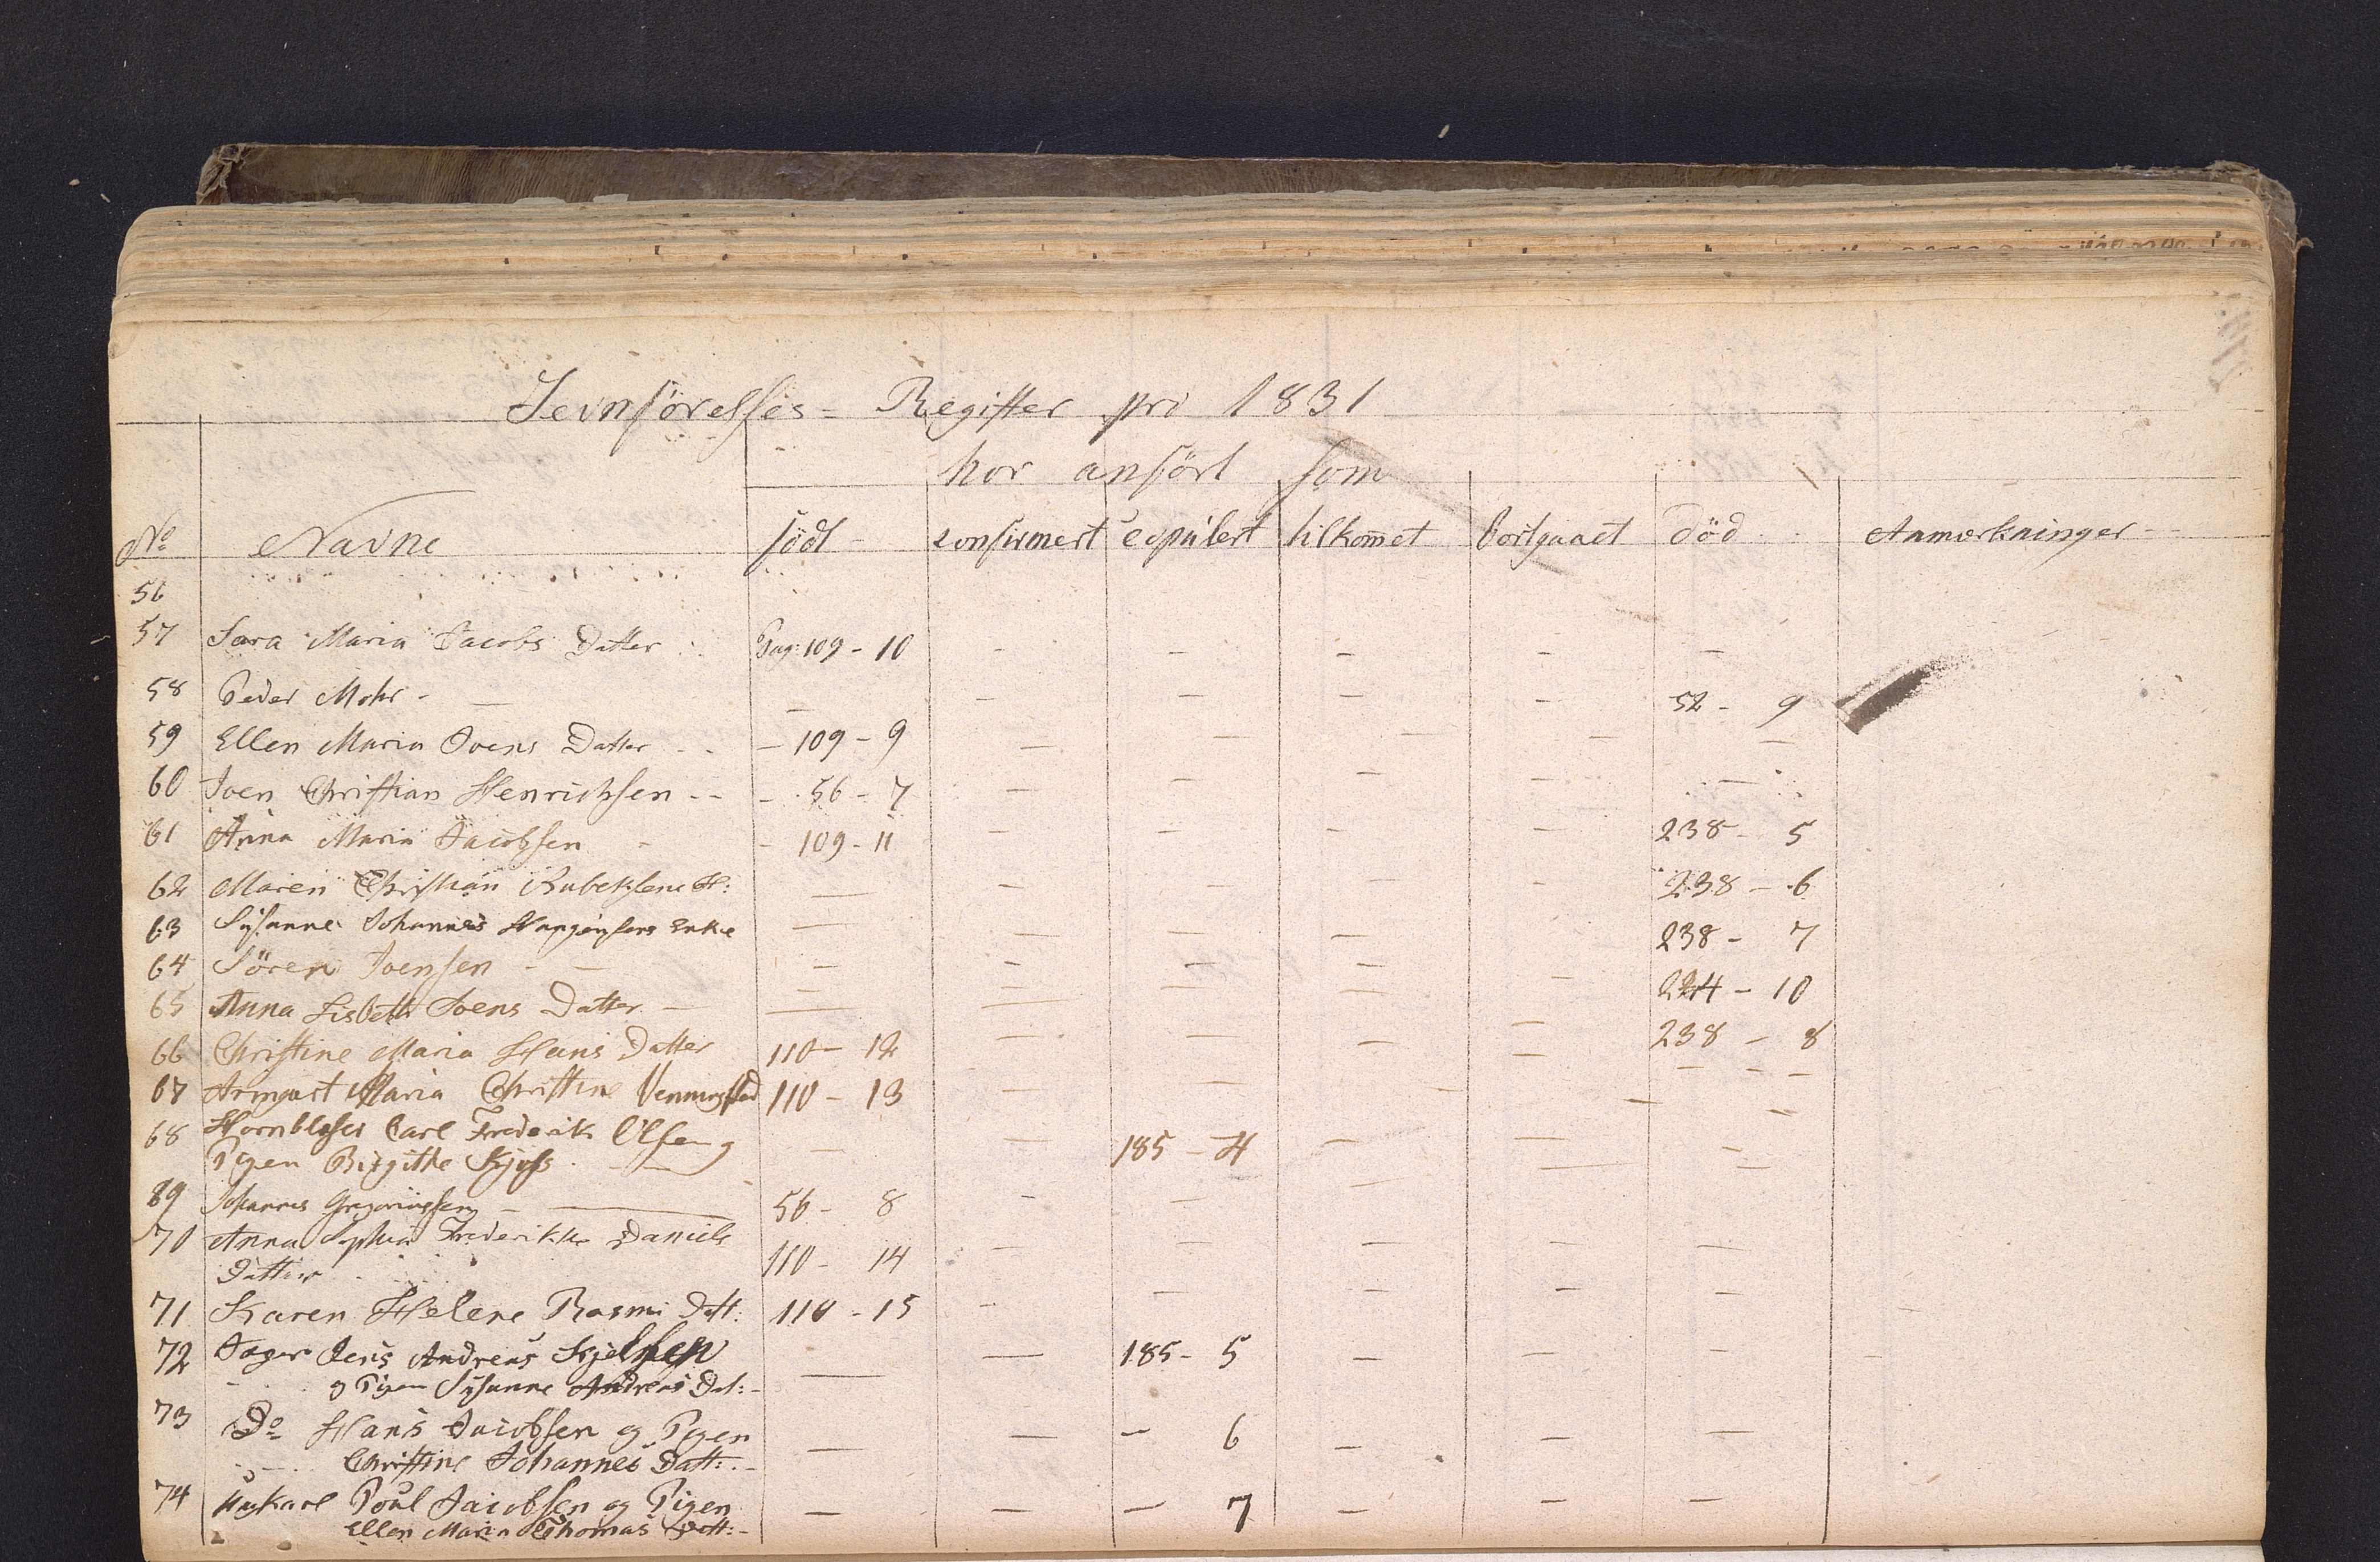 Jevnförelses-Register pro 1831
hor anfört som
No Navne födt confirmert copulert tilkommet bortgaaet död Anmærkninger
56
57 Sara Maria Jacobs Datter Pag: 109 - 10 - - - - -
58 Peder Mohr - - - - - - 52 - 9
59 Ellen Maria Joens Datter - 109 - 9 - - - - -
60 Joen Christian Henrichsen - 56 - 7 - - - - -
61 Anna Maria Jacobsen - 109 - 11 - - - - 238 - 5
62 Maren Christian - - - - - 238 - 6
63 Susanne Johannes Enke - - - - 238 - 7
64 Sören Joensen - - - - - - 224 - 10
65 Anna Lisbeth Joens Datter - - - - - - 238 - 8
66 Christine Maria Hans Datter 110 - 12 - - - - -
67 Armgart Maria Christine Venningsted 110 - 13 - - - - -
68 Hornblæser Carl Frederik Olsen og
Pigen Birgithe - - 185 - 4 - - -
69 Johannes Gregoriussen - 56 - 8 - - - - -
70 Anna Sophia Frederikke Daniels
Datter 110 - 14 - - - - -
71 Karen Helene Rasmi Datt: 110 - 15 - - - - -
72 Jager Jens Andreas Kjelsen
og Pigen Susanne Andreas Dat: - - - 185 - 5 - - -
73 Do Hans Jacobsen og Pigen
Christine Johannes Datt: - - - - 6 - - -
74 Huskarl Poul Jacobsen og Pigen
Ellen Maria Thomas Datt: - - - - 7 - - -